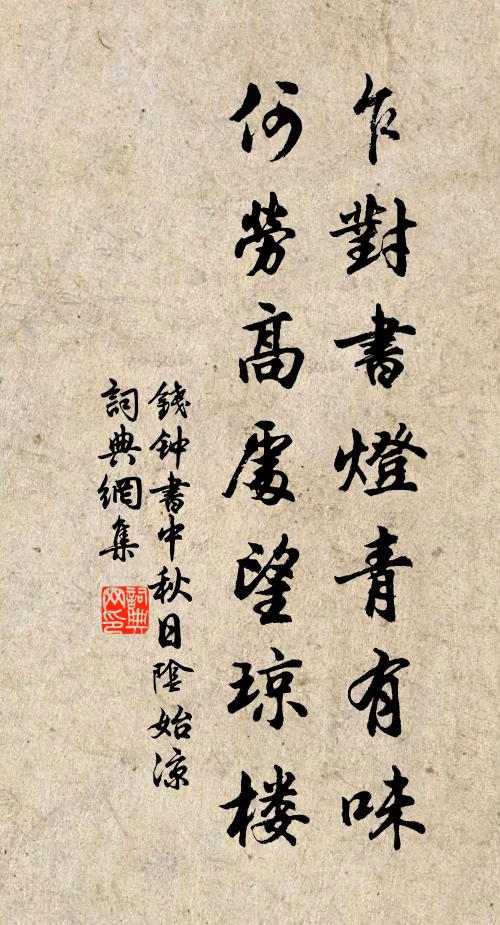 乍對書燈青有味
何勞高處望琼楼
錢钟書中秋日陰始涼
詞典網集
詞典網印